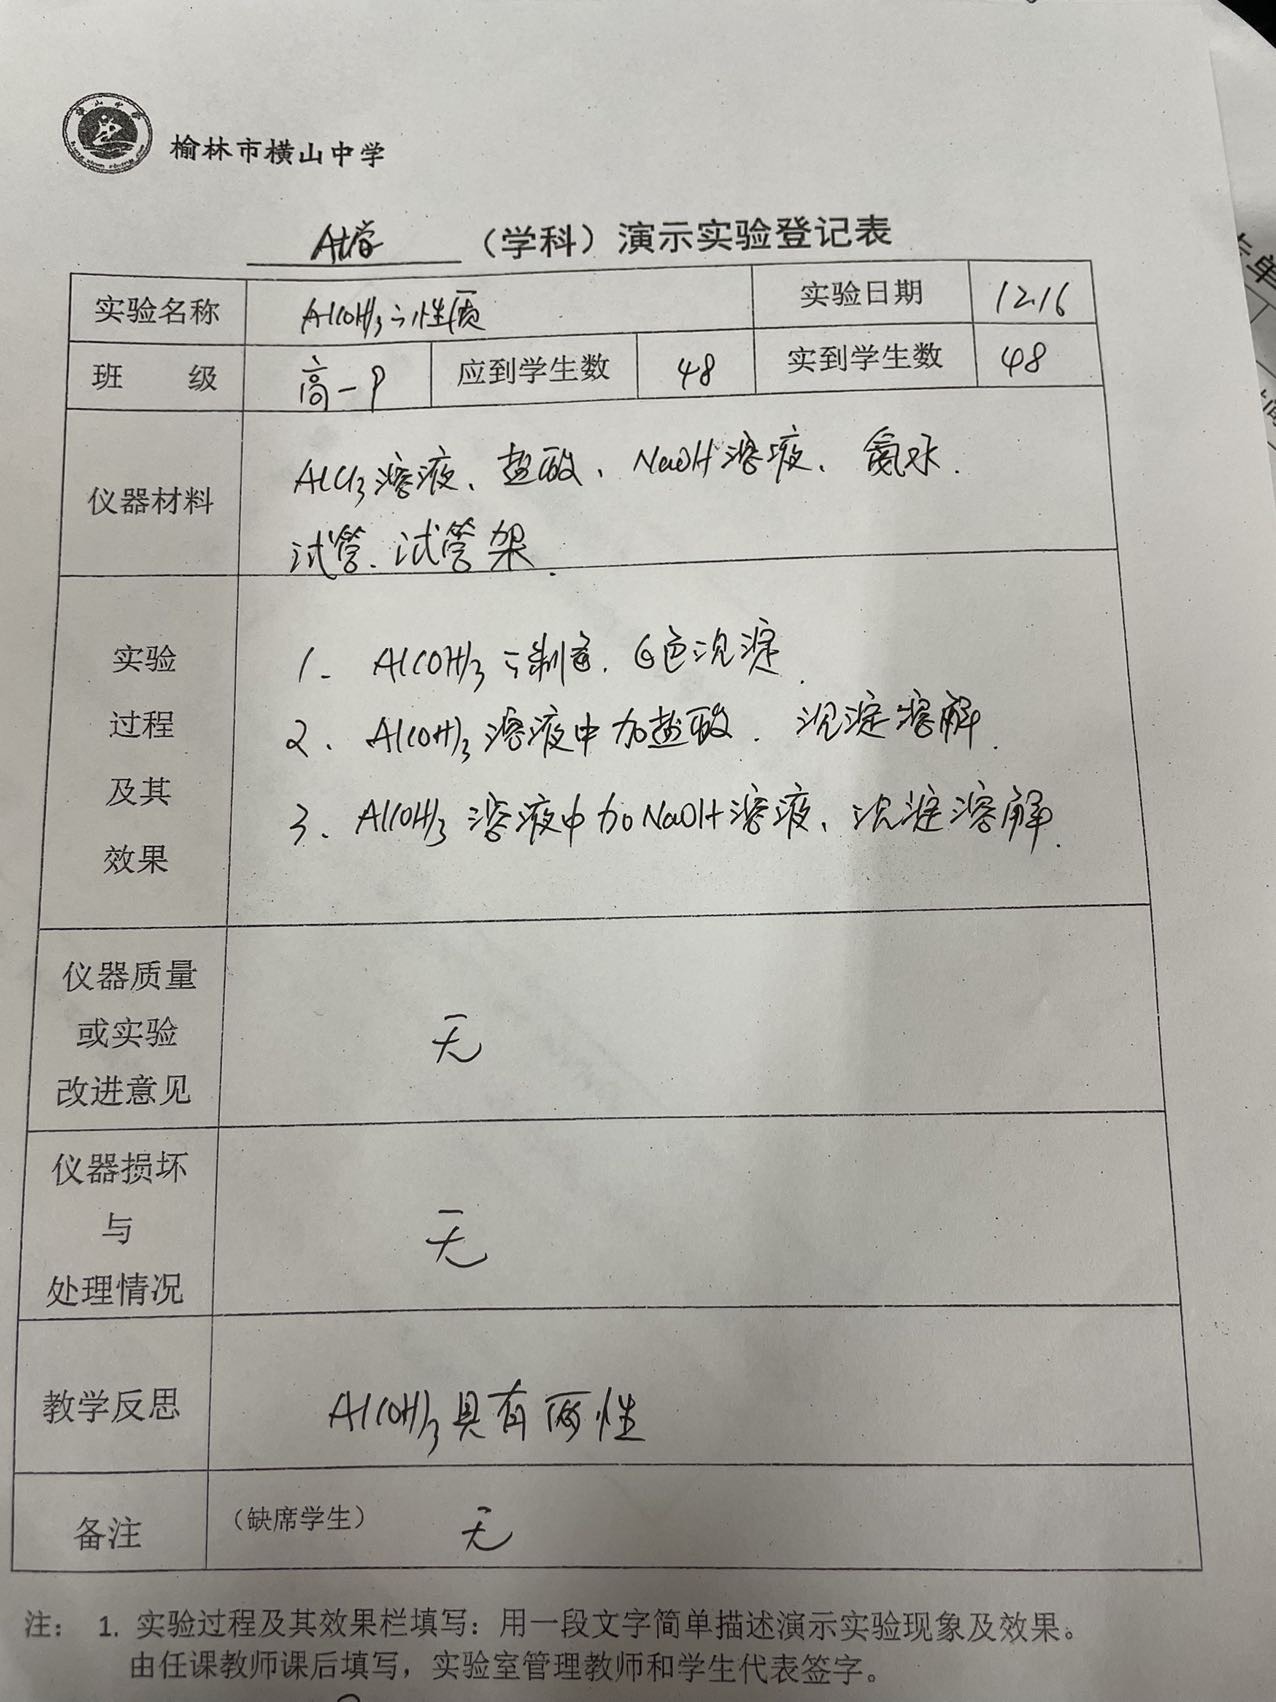 榆林市横山中学
化学（学科）演示实验登记表
实验名称 Al(OH)3的性质 实验日期 12.16
班 级 高一9 应到学生数 48 实到学生数 48
仪器材料
AlCl3溶液、盐酸、NaOH溶液、氨水.
试管、试管架.
实验
过程
及其
效果
1. Al(OH)3的制备. 白色沉淀.
2、Al(OH)3溶液中加盐酸. 沉淀溶解.
3、Al(OH)3溶液中加NaOH溶液、沉淀溶解.
仪器质量
或实验
改进意见
无
仪器损坏
与
处理情况
无
教学反思 Al(OH)3具有两性
备注 （缺席学生） 无
注： 1. 实验过程及其效果栏填写：用一段文字简单描述演示实验现象及效果。
由任课教师课后填写，实验室管理教师和学生代表签字。